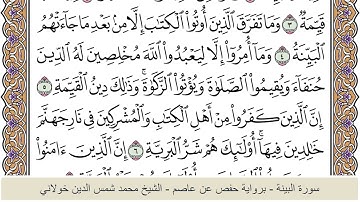 قَيِّمَةٌ ٣ وَمَا تَفَرَّقَ ٱلَّذِينَ أُوتُوا۟ ٱلْكِتَٰبَ إِلَّا مِنۢ بَعْدِ مَا جَآءَتْهُمُ
ٱلْبَيِّنَةُ ٤ وَمَآ أُمِرُوٓا۟ إِلَّا لِيَعْبُدُوا۟ ٱللَّهَ مُخْلِصِينَ لَهُ ٱلدِّينَ
حُنَفَآءَ وَيُقِيمُوا۟ ٱلصَّلَوٰةَ وَيُؤْتُوا۟ ٱلزَّكَوٰةَ ۚ وَذَٰلِكَ دِينُ ٱلْقَيِّمَةِ ٥
إِنَّ ٱلَّذِينَ كَفَرُوا۟ مِنْ أَهْلِ ٱلْكِتَٰبِ وَٱلْمُشْرِكِينَ فِى نَارِ جَهَنَّمَ
خَٰلِدِينَ فِيهَآ ۚ أُو۟لَٰٓئِكَ هُمْ شَرُّ ٱلْبَرِيَّةِ ٦ إِنَّ ٱلَّذِينَ ءَامَنُوا۟
سورة البينة - برواية حفص عن عاصم - الشيخ محمد شمس الدين خولاني